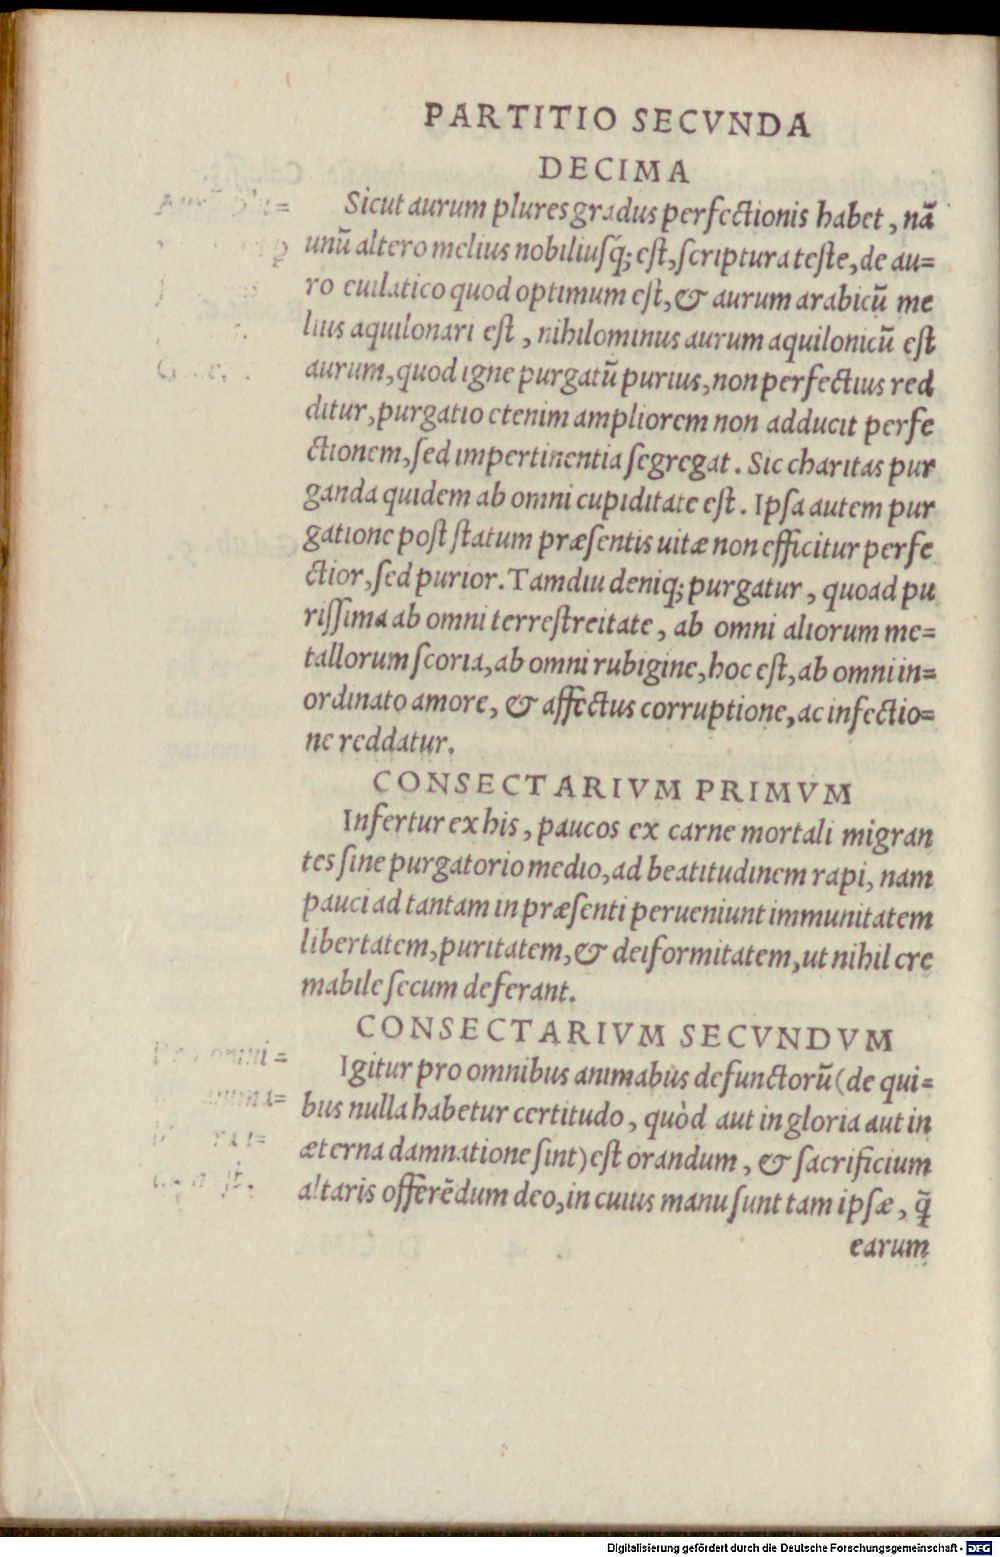 PARTITIO SECVNDA
DECIMA
Sicut aurum plures gradus perfectionis habet, nã
unũ altero melius nobiliusq́; est, scriptura teste, de au=
ro euilatico quod optimum est, & aurum arabicũ me
lius aquilonari est, nihilominus aurum aquilonicũ est
aurum, quod igne purgatũ purius, non perfectius red
ditur, purgatio etenim ampliorem non adducit perfe
ctionem, sed impertinentia segregat. Sic charitas pur
ganda quidem ab omni cupiditate est. Ipsa autem pur
gatione post statum præsentis uitæ non efficitur perfe
ctior, sed purior. Tamdiu deniq; purgatur, quoad pu
rissima ab omni terrestreitate, ab omni aliorum me=
tallorum scoria, ab omni rubigine, hoc est, ab omni in=
ordinato amore, & affectus corruptione, ac infectio=
ne reddatur.
CONSECTARIVM PRIMVM
Infertur ex his, paucos ex carne mortali migran
tes sine purgatorio medio, ad beatitudinem rapi, nam
pauci ad tantam in præsenti perueniunt immunitatem
libertatem, puritatem, & deiformitatem, ut nihil cre
mabile secum deferant.
CONSECTARIVM SECVNDVM
Igitur pro omnibus animabus defunctorũ (de qui=
bus nulla habetur certitudo, quòd aut in gloria aut in
æterna damnatione sint) est orandum, & sacrificium
altaris offerẽdum deo, in cuius manu sunt tam ipsæ, q̃
earum
Digitalisierung gefördert durch die Deutsche Forschungsgemeinschaft - DFG